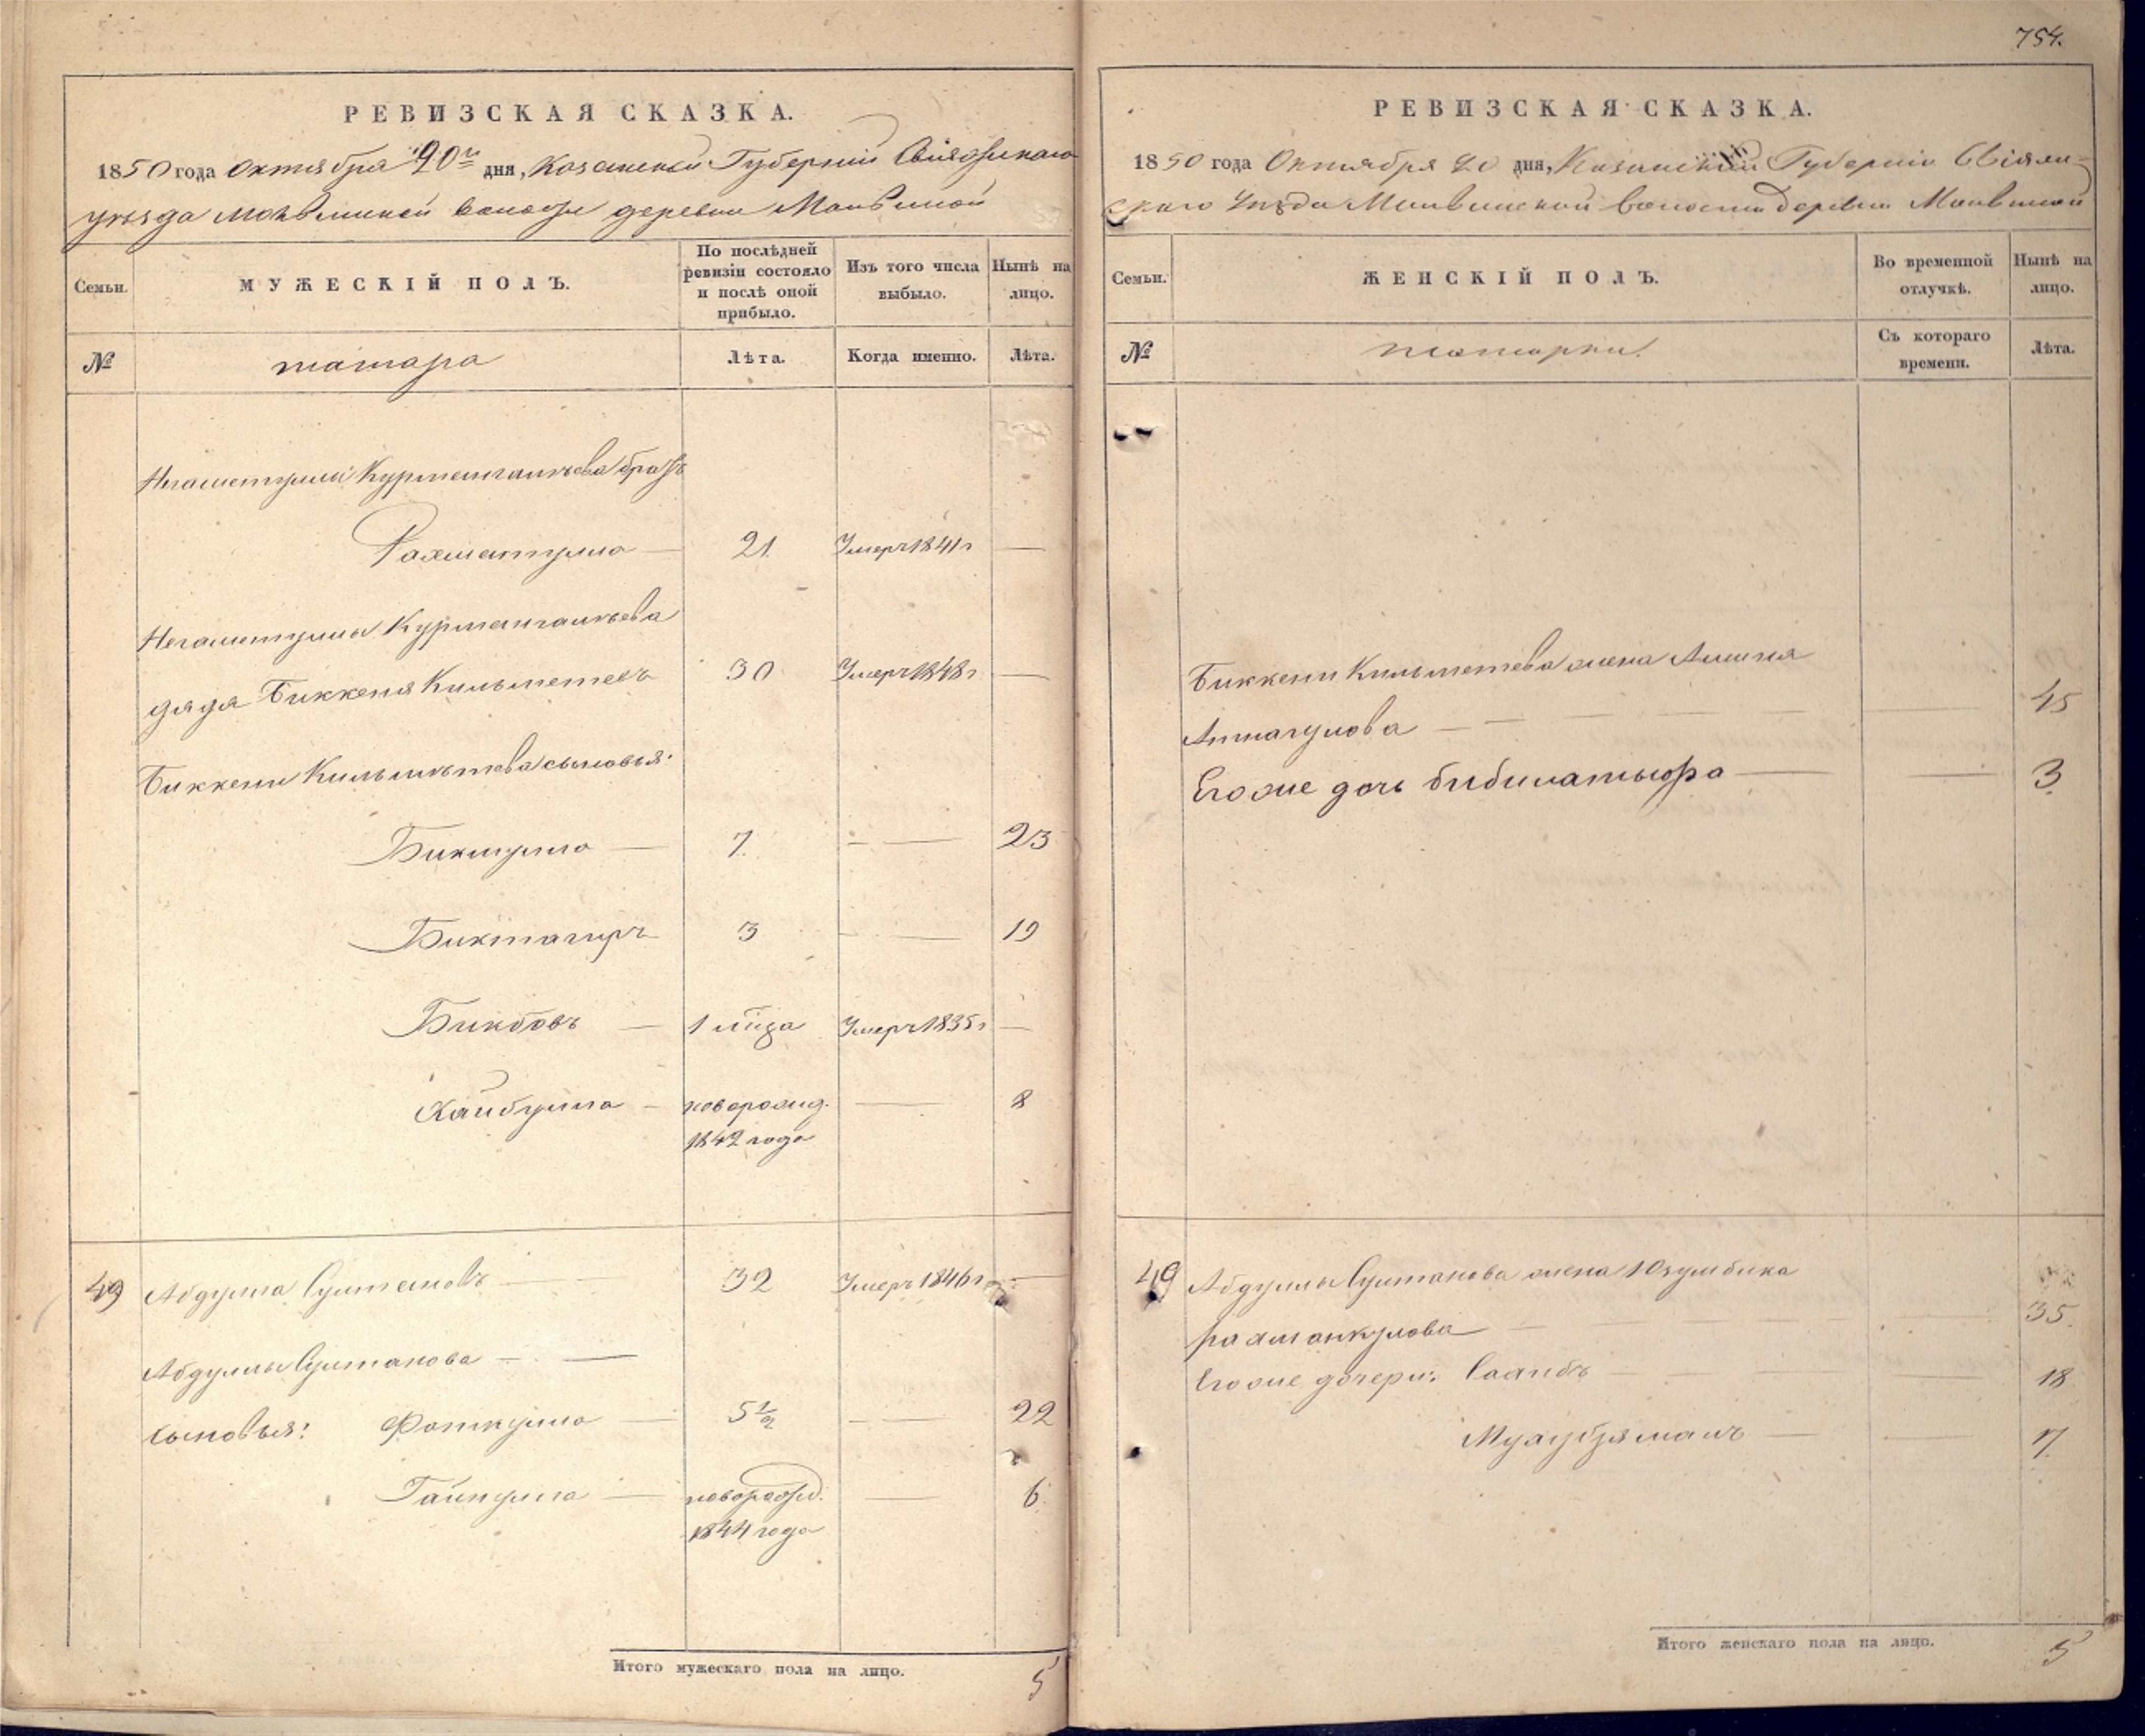 РЕВИЗСКАЯ СКАЗКА.
1850 года Октября 20го дня, Казанской Губерніи Свіяжскаго
уѣзда волости деревни
Семьи.
МУЖЕСКІЙ ПОЛЪ.
По послѣдней
ревизіи состояло
и послѣ оной
прибыло.
Изъ того числа
выбыло.
Нынѣ на
лицо.
№
татара
Лѣта.
Когда именно.
Лѣта.
Негаметуллы Курмангалѣева братъ
Рахматулла — 21 Умеръ 1841 г —
Негаметуллы Курмангалѣева
дядя Биккеня Кильметевъ 30 Умеръ 1848 г —
Биккени Кильметева сыновья:
Бикмулла — 7. — — 23
Биктагиръ 3 — — 19
— 1 Умеръ 1835 г —
Хайбулла — новорожд. — 8
1842 года
49 Абдулла Султановъ — 32 Умеръ 1846 г —
Абдуллы Султанова — —
сыновья: Фаткулла — 5½ — 22
Гайнулла — новорожд. — 6
1844 года
Итого мужескаго пола на лицо.
5
754.
РЕВИЗСКАЯ СКАЗКА.
1850 года Октября 20 дня, Казанской Губерніи Свіяж-
скаго Уѣзда волости деревни
Семьи.
ЖЕНСКІЙ ПОЛЪ.
Во временной
отлучкѣ.
Нынѣ на
лицо.
№
татарки.
Съ котораго
времени.
Лѣта.
Биккени Кильметева жена
— — — 45
Его же дочь — — 3.
49 Абдуллы Султанова жена Юзумбика
— — — 35.
Его же дочери: — — 18
— — 7.
Итого женскаго пола на лицо.
5